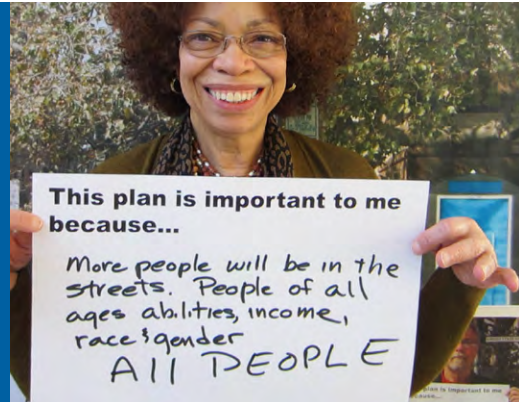 This plan is important to me
because...
More people will be in the
streets. People of all
ages abilities, income,
race & gender
All PEOPLE
plan is important to me
cause...